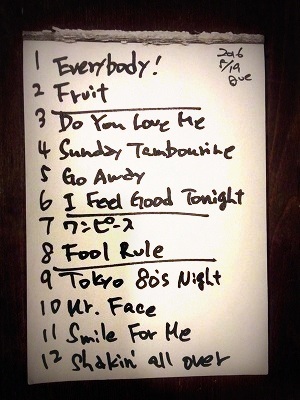 1 Everybody!
2 Fruit
3 Do You Love Me
4 Sunday Tambourine
5 Go Away
6 I Feel Good Tonight
7 ワンピース
8 Fool Rule
9 Tokyo 80's Night
10 Mr. Face
11 Smile For Me
12 Shakin' all over
2016
Que